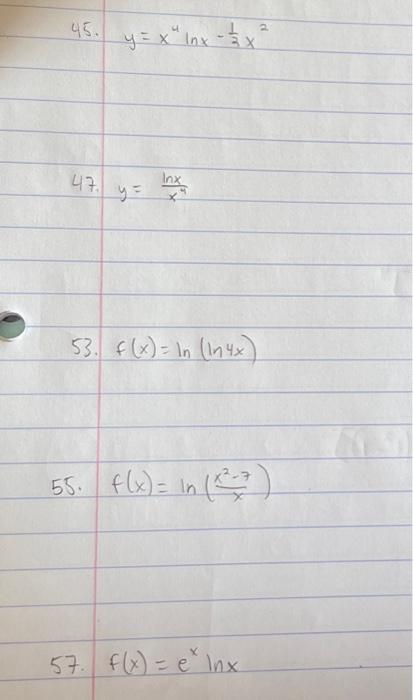 45. y = x⁴ lnx - ½x²
47. y = lnx/x⁴
53. f(x) = ln (ln4x)
55. f(x) = ln ((x²-7)/x)
57. f(x) = eˣ lnx